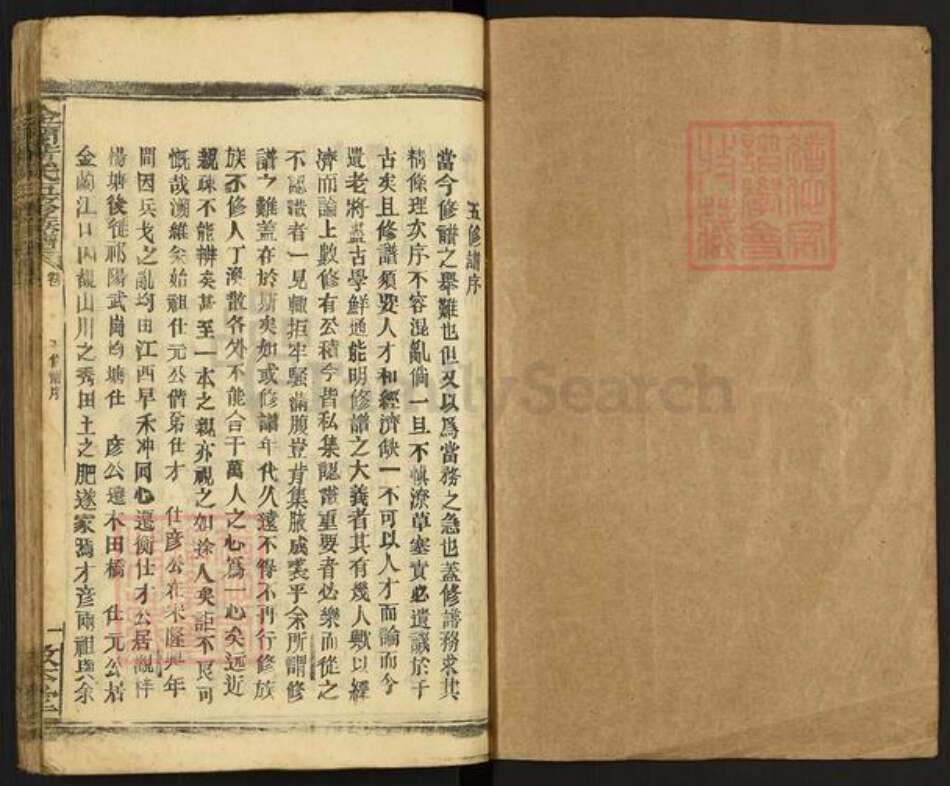 五修譜序
當今修譜之舉難也但又以為當務之急也蓋修譜務求其
精條理次序不容混亂倘一旦不慎潦草塞責必遺議於千
古矣且修譜須要人才和經濟缺一不可以人才而論而今
遺老將盡古學鮮通能明修譜之大義者其有幾人歟以經
濟而論上數修有公積今皆私集認譜重要者必樂而從之
不認識者一見輒拒牢騷滿腹豈肯集腋成裘乎余所謂修
譜之難蓋在於斯矣如或修譜年代久遠不得不再行修族
族不修人丁渙散各外不能合千萬人之心為一心矣远近
親疎不能辨矣甚至一本之親亦視之如途人矣詎不良可
慨哉溯維矣始祖仕元公偕弟仕才 仕彦公在宋隆興年
間因兵戈之亂均由江西早禾冲同心遷衡仕才公居
楊塘後徙祁陽武崗均塘仕 彦公遷木田橋 仕元公居
金蘭江口因觀山川之秀田土之肥遂家焉才彦兩祖與余
五修族譜 卷
FamilySearch